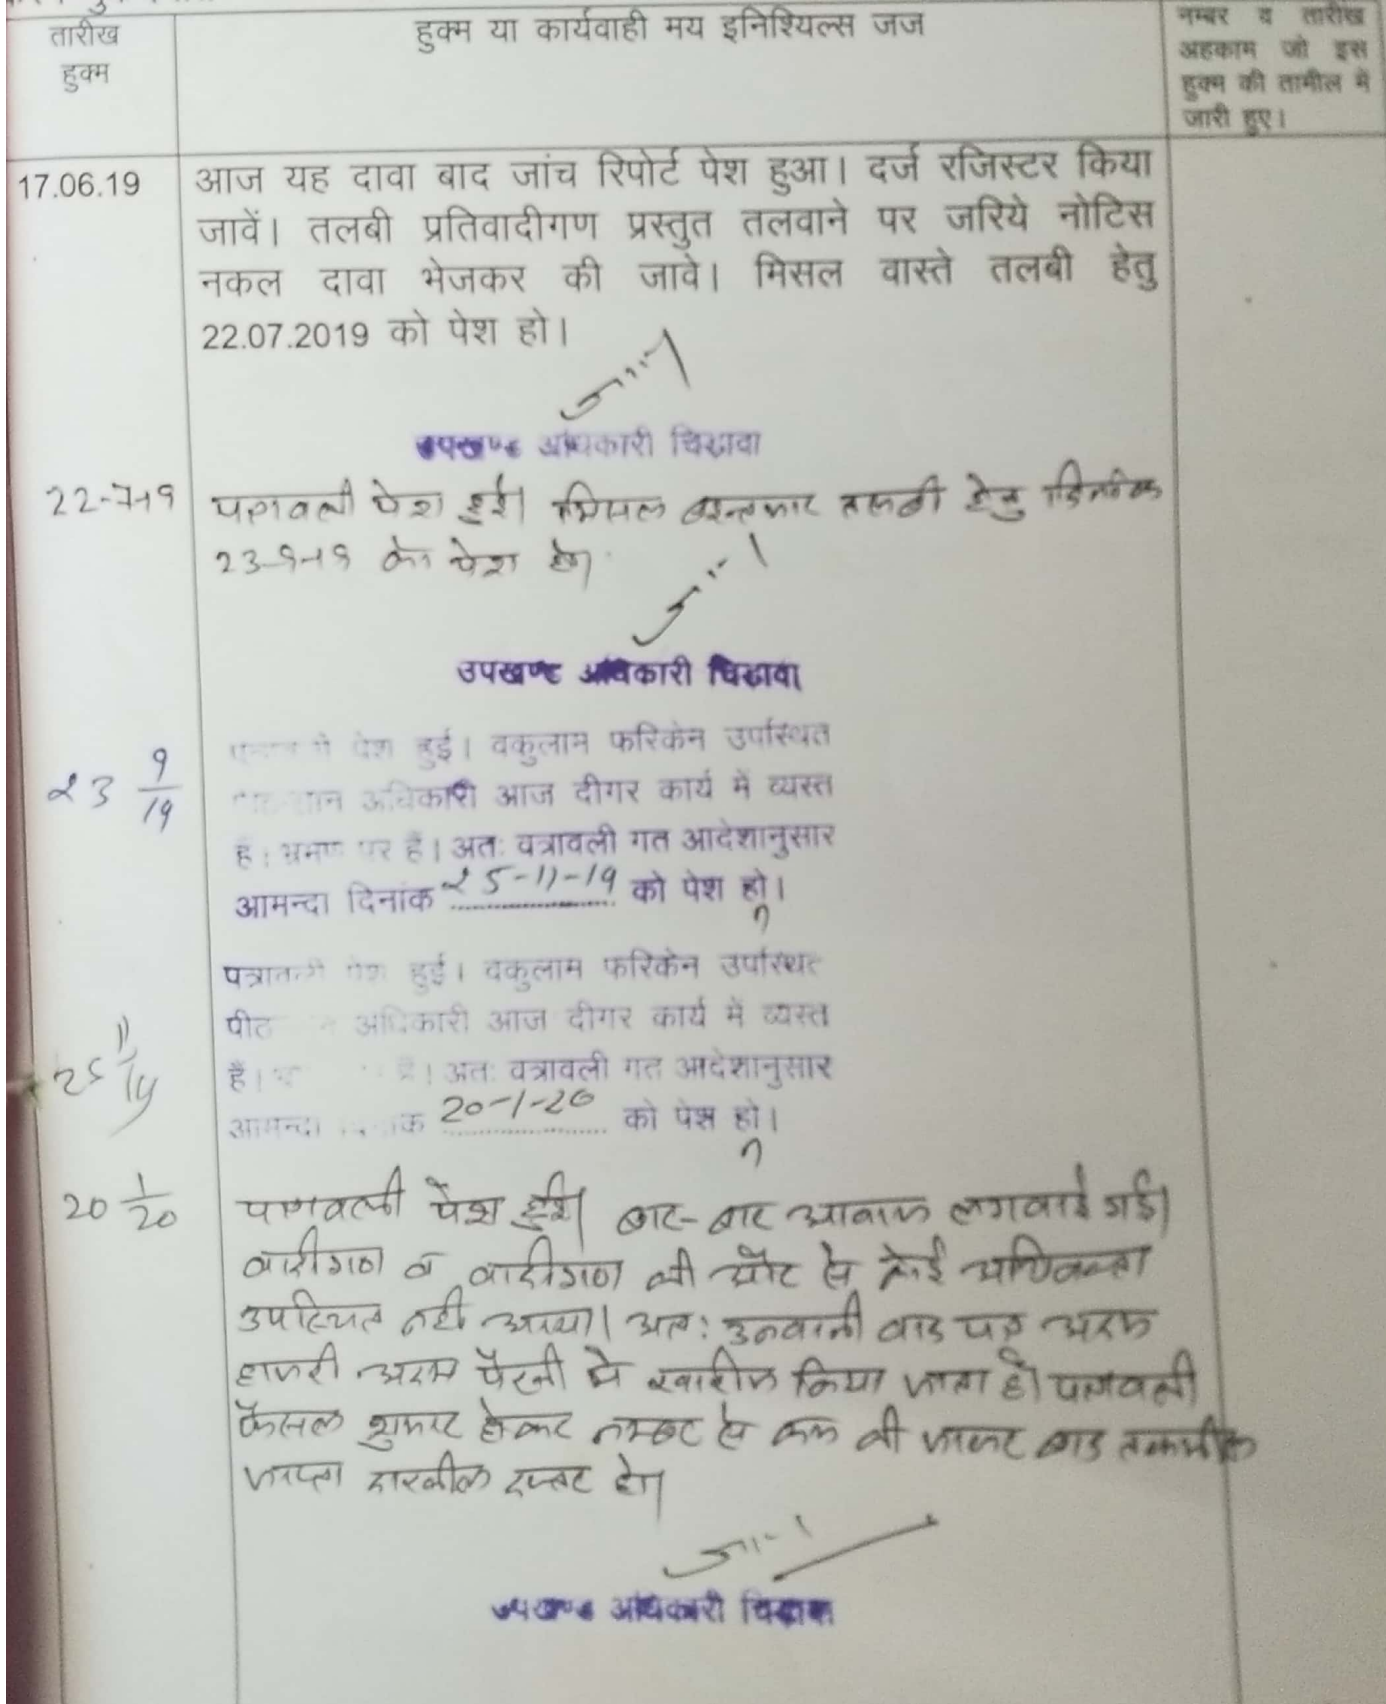 तारीख
हुक्म
हुक्म या कार्यवाही मय इनिश्यिल्स जज
नम्बर व तारीख
अहकाम जो इस
हुक्म की तामील में
जारी हुए।
17.06.19
आज यह दावा बाद जांच रिपोर्ट पेश हुआ। दर्ज रजिस्टर किया
जावें। तलबी प्रतिवादीगण प्रस्तुत तलवाने पर जरिये नोटिस
नकल दावा भेजकर की जावे। मिसल वास्ते तलबी हेतु
22.07.2019 को पेश हो।
उपखण्ड अधिकारी चिडावा
22-7-19
पत्रावली पेश हुई। मिसल इन्तजार तलबी हेतु दिनांक
23-9-19 को पेश हो।
उपखण्ड अधिकारी चिडावा
23 9/19
पेश हुई। वकुलाम फरिकेन उपस्थित
अधिकारी आज दीगर कार्य में व्यस्त
है। भ्रमण पर है। अतः वत्रावली गत आदेशानुसार
आमन्दा दिनांक 25-11-19 को पेश हो।
पत्रावली पेश हुई। वकुलाम फरिकेन उपस्थित
पीठ अधिकारी आज दीगर कार्य में व्यस्त
25 11/19
हैं। है। अतः वत्रावली गत आदेशानुसार
आमन्दा 20-1-20 को पेश हो।
20 1/20
पत्रावली पेश हुई। बार-बार आवाज लगवाई गई।
वादीगण व वादीगण की ओर से कोई अधिवक्ता
उपस्थित नहीं आया। अतः उनवानी वाद पत्र अदम
हाजरी अदम पैरवी में खारीज किया जाता है। पत्रावली
फैसल शुमार होकर नम्बर से कम की जाकर बाद तकमील
जाप्ता दाखील दफ्तर हो।
उपखण्ड अधिकारी चिडावा